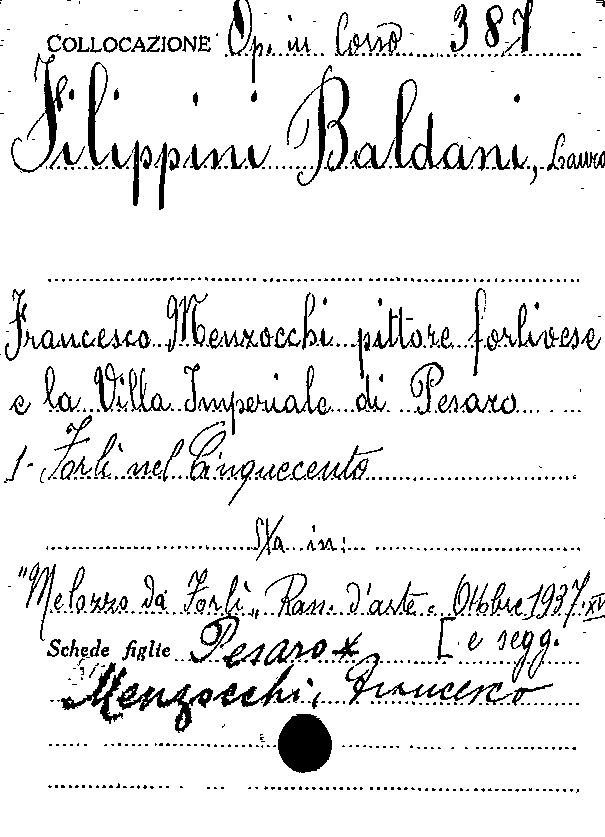 COLLOCAZIONE Op. in Corso 387
Filippini Baldani, Laura
Francesco Menzocchi pittore forlivese
e la Villa Imperiale di Pesaro
1- Forlì nel Cinquecento
Sta in:
"Melozzo da Forlì" Ras. d'arte. Ottobre 1937. XV
Schede figlie Pesaro x [ e segg.
Menzocchi, Francesco